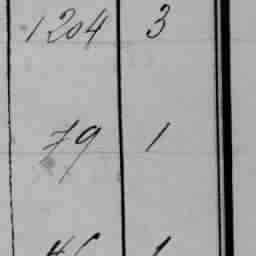 1204 3
79 1